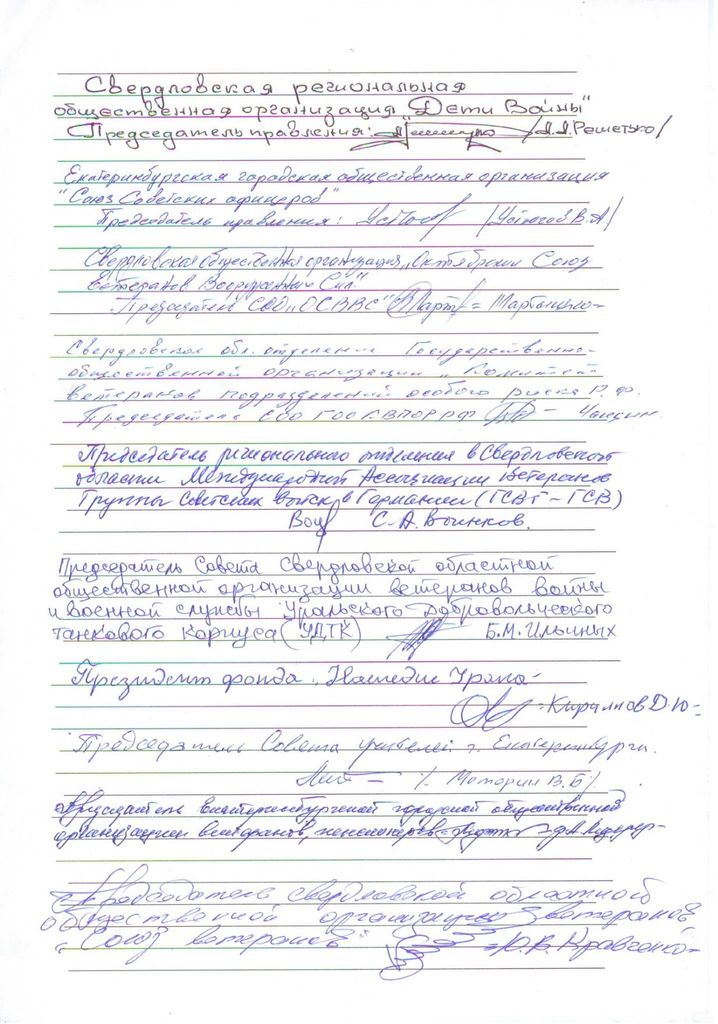 Свердловская региональная
общественная организация "Дети Войны"
Председатель правления: /А.А.Решетько/
Екатеринбургская городская общественная организация
"Союз Советских офицеров"
Председатель правления: /Устюгов В.А/
Свердловская общественная организация „Октябрский Союз
Ветеранов Вооруженных Сил"
Председатель СОО „ОСВВС"
Свердловское обл. отделение Государственно-
общественной организации „Комитет
ветеранов подразделений особого риска Р.Ф.
Председатель СОО ГОО КВПОР РФ
Председатель регионального отделения в Свердловской
области Международной Ассоциации Ветеранов
Группы Советских войск в Германии (ГСВГ-ГСВ)
С.А. Воинков.
Председатель Совета Свердловской областной
общественной организации ветеранов войны
и военной службы Уральского Добровольческого
танкового корпуса (УДТК) Б.М. Ильиных
Президент фонда „Наследие Урала-
Кириллов Д.Ю-
Председатель Совета учителей г. Екатеринбурга.
/. Моторин В.Б/
Председатель Екатеринбургской городской общественной
организации ветеранов, пенсионеров
Председатель свердловской областной
общественной организации ветеранов
"Союз ветеранов" Ю.В. Кравченко-